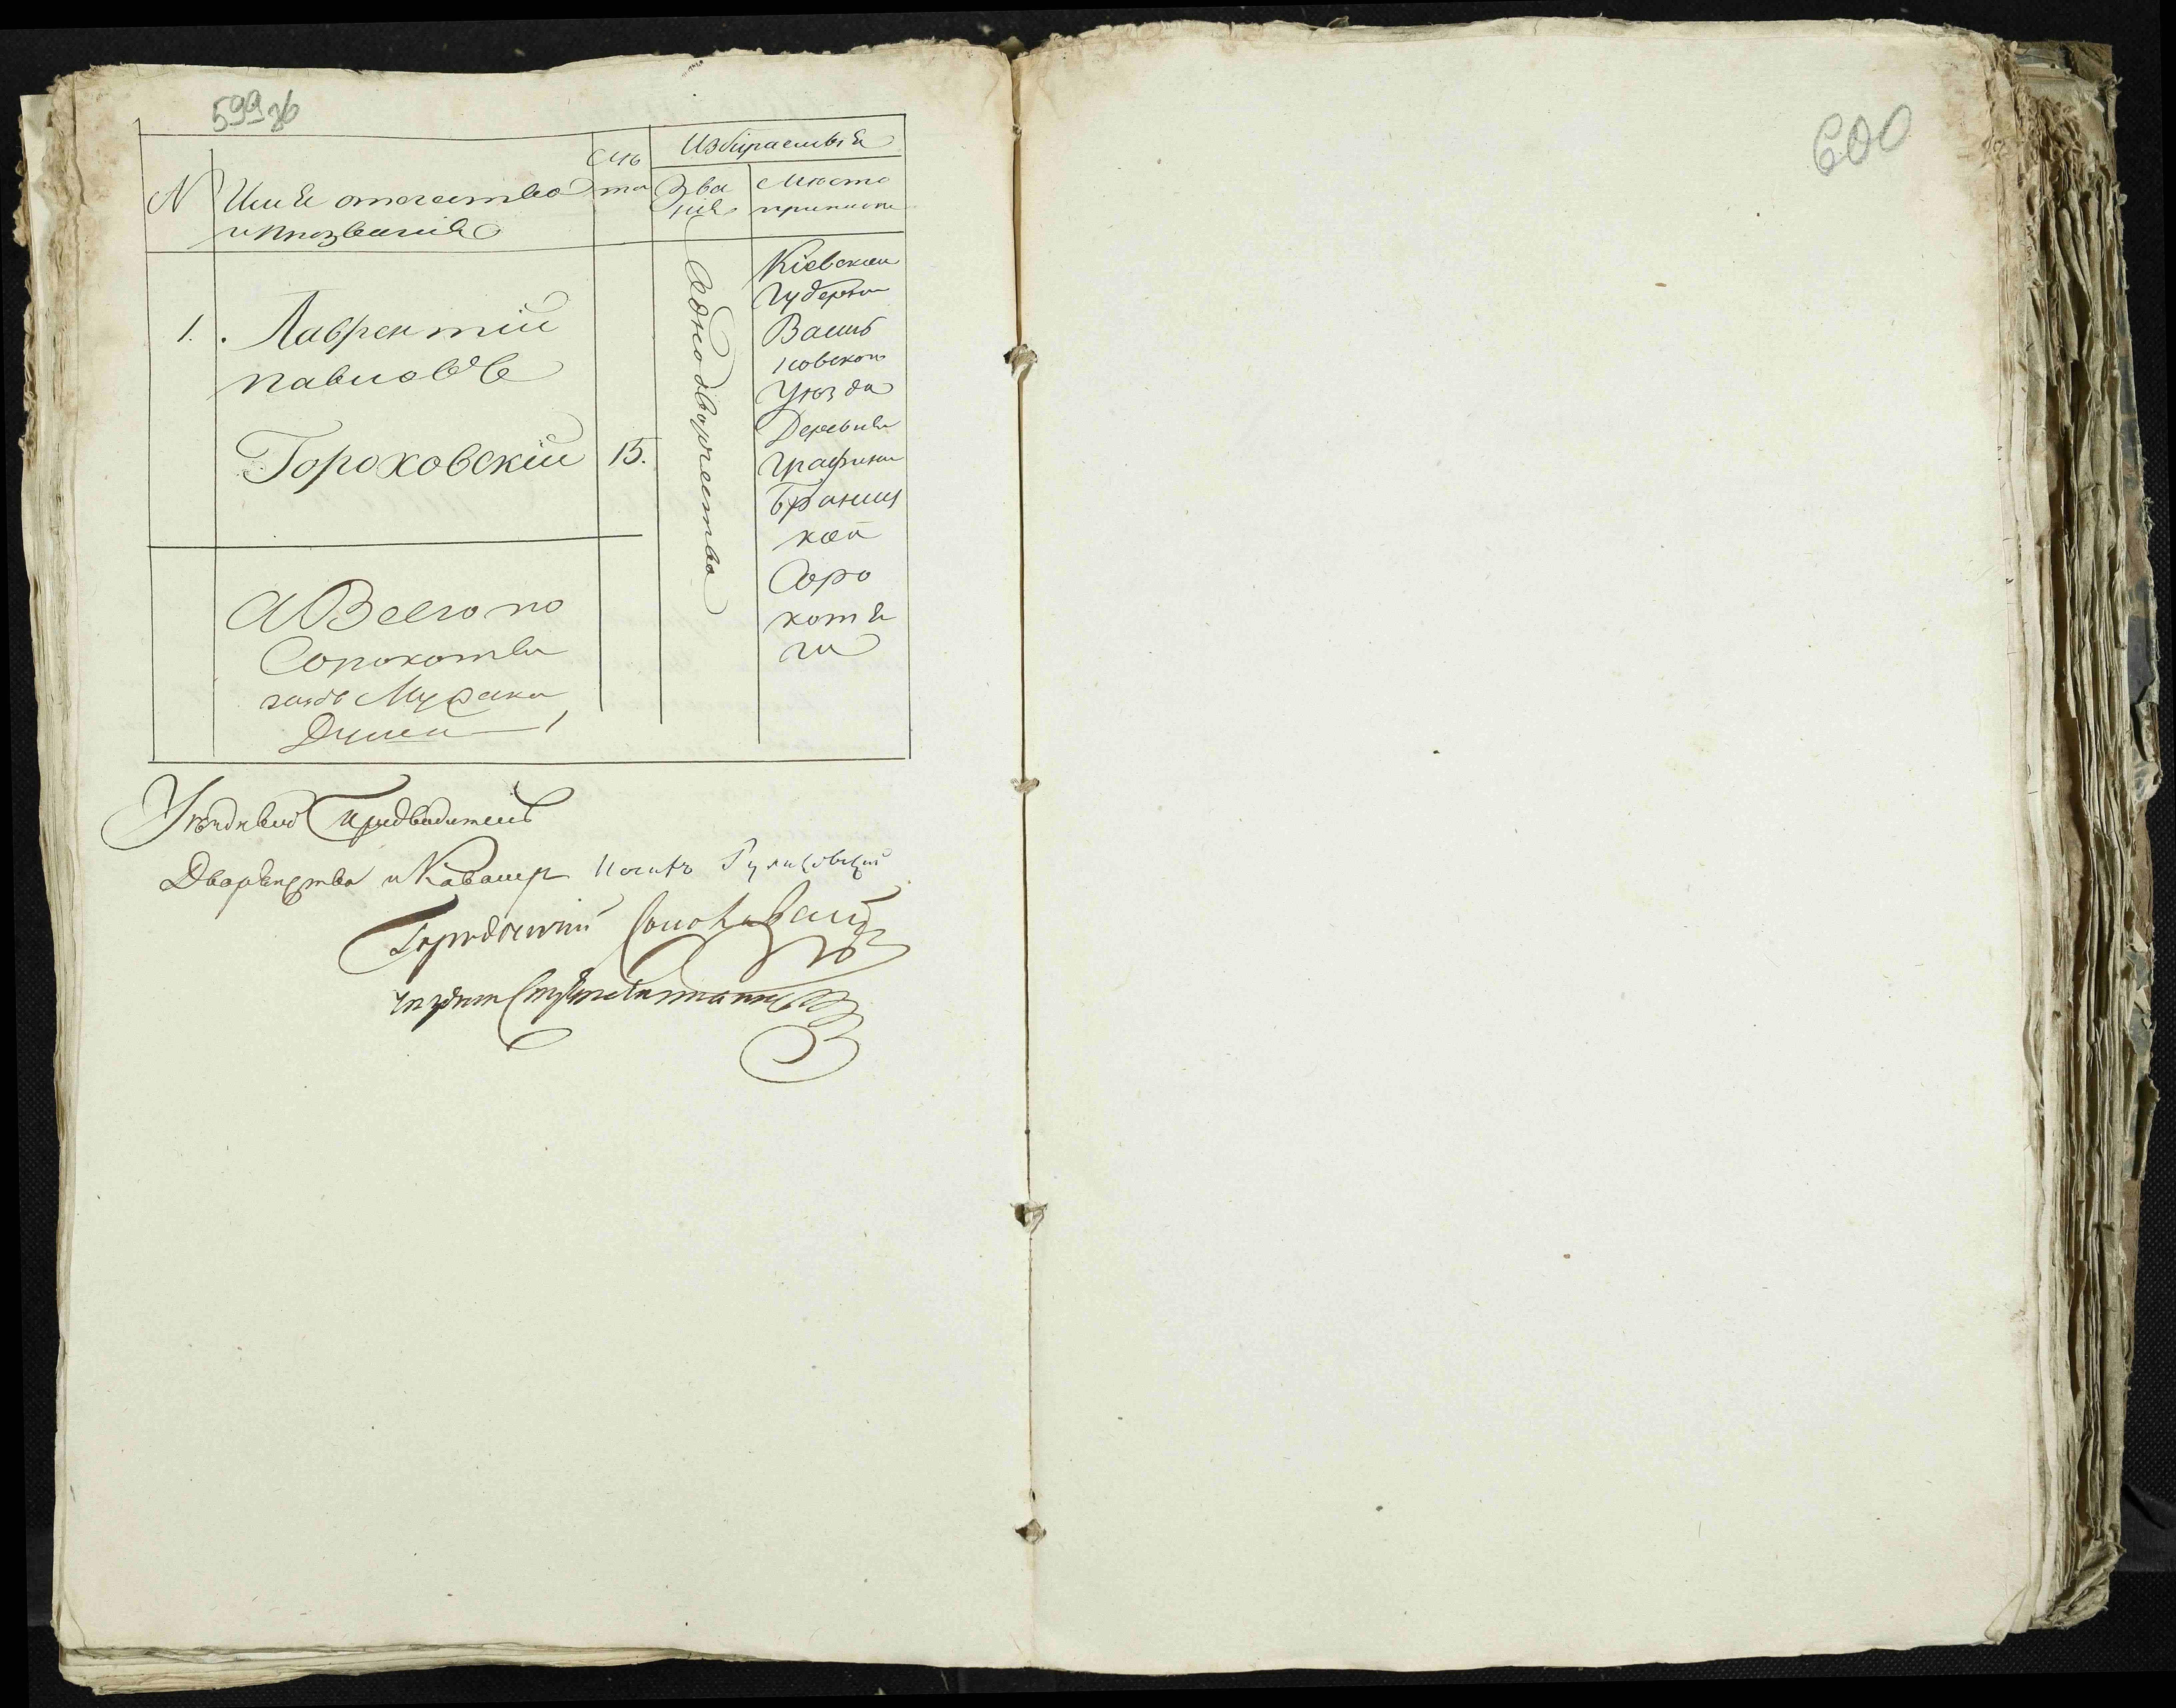 599 об
600
N
Имя отечество
и прозваніе
Лѣ
та
Избираемыя
Зва
ніе
Место
приписки
1.
Лаврентій
Павловъ
Гороховскій
15.
Однодворчество
Кіевской
Губерніи
Василь
ковскои
Уезда
Деревни
Графини
Браниц
кой
Соро
котя
ги
А Всего по
Сорокотя
гамъ Мужска
Души 1
Уѣздный Предводитель
Дворянства и Кавалер
Городничий